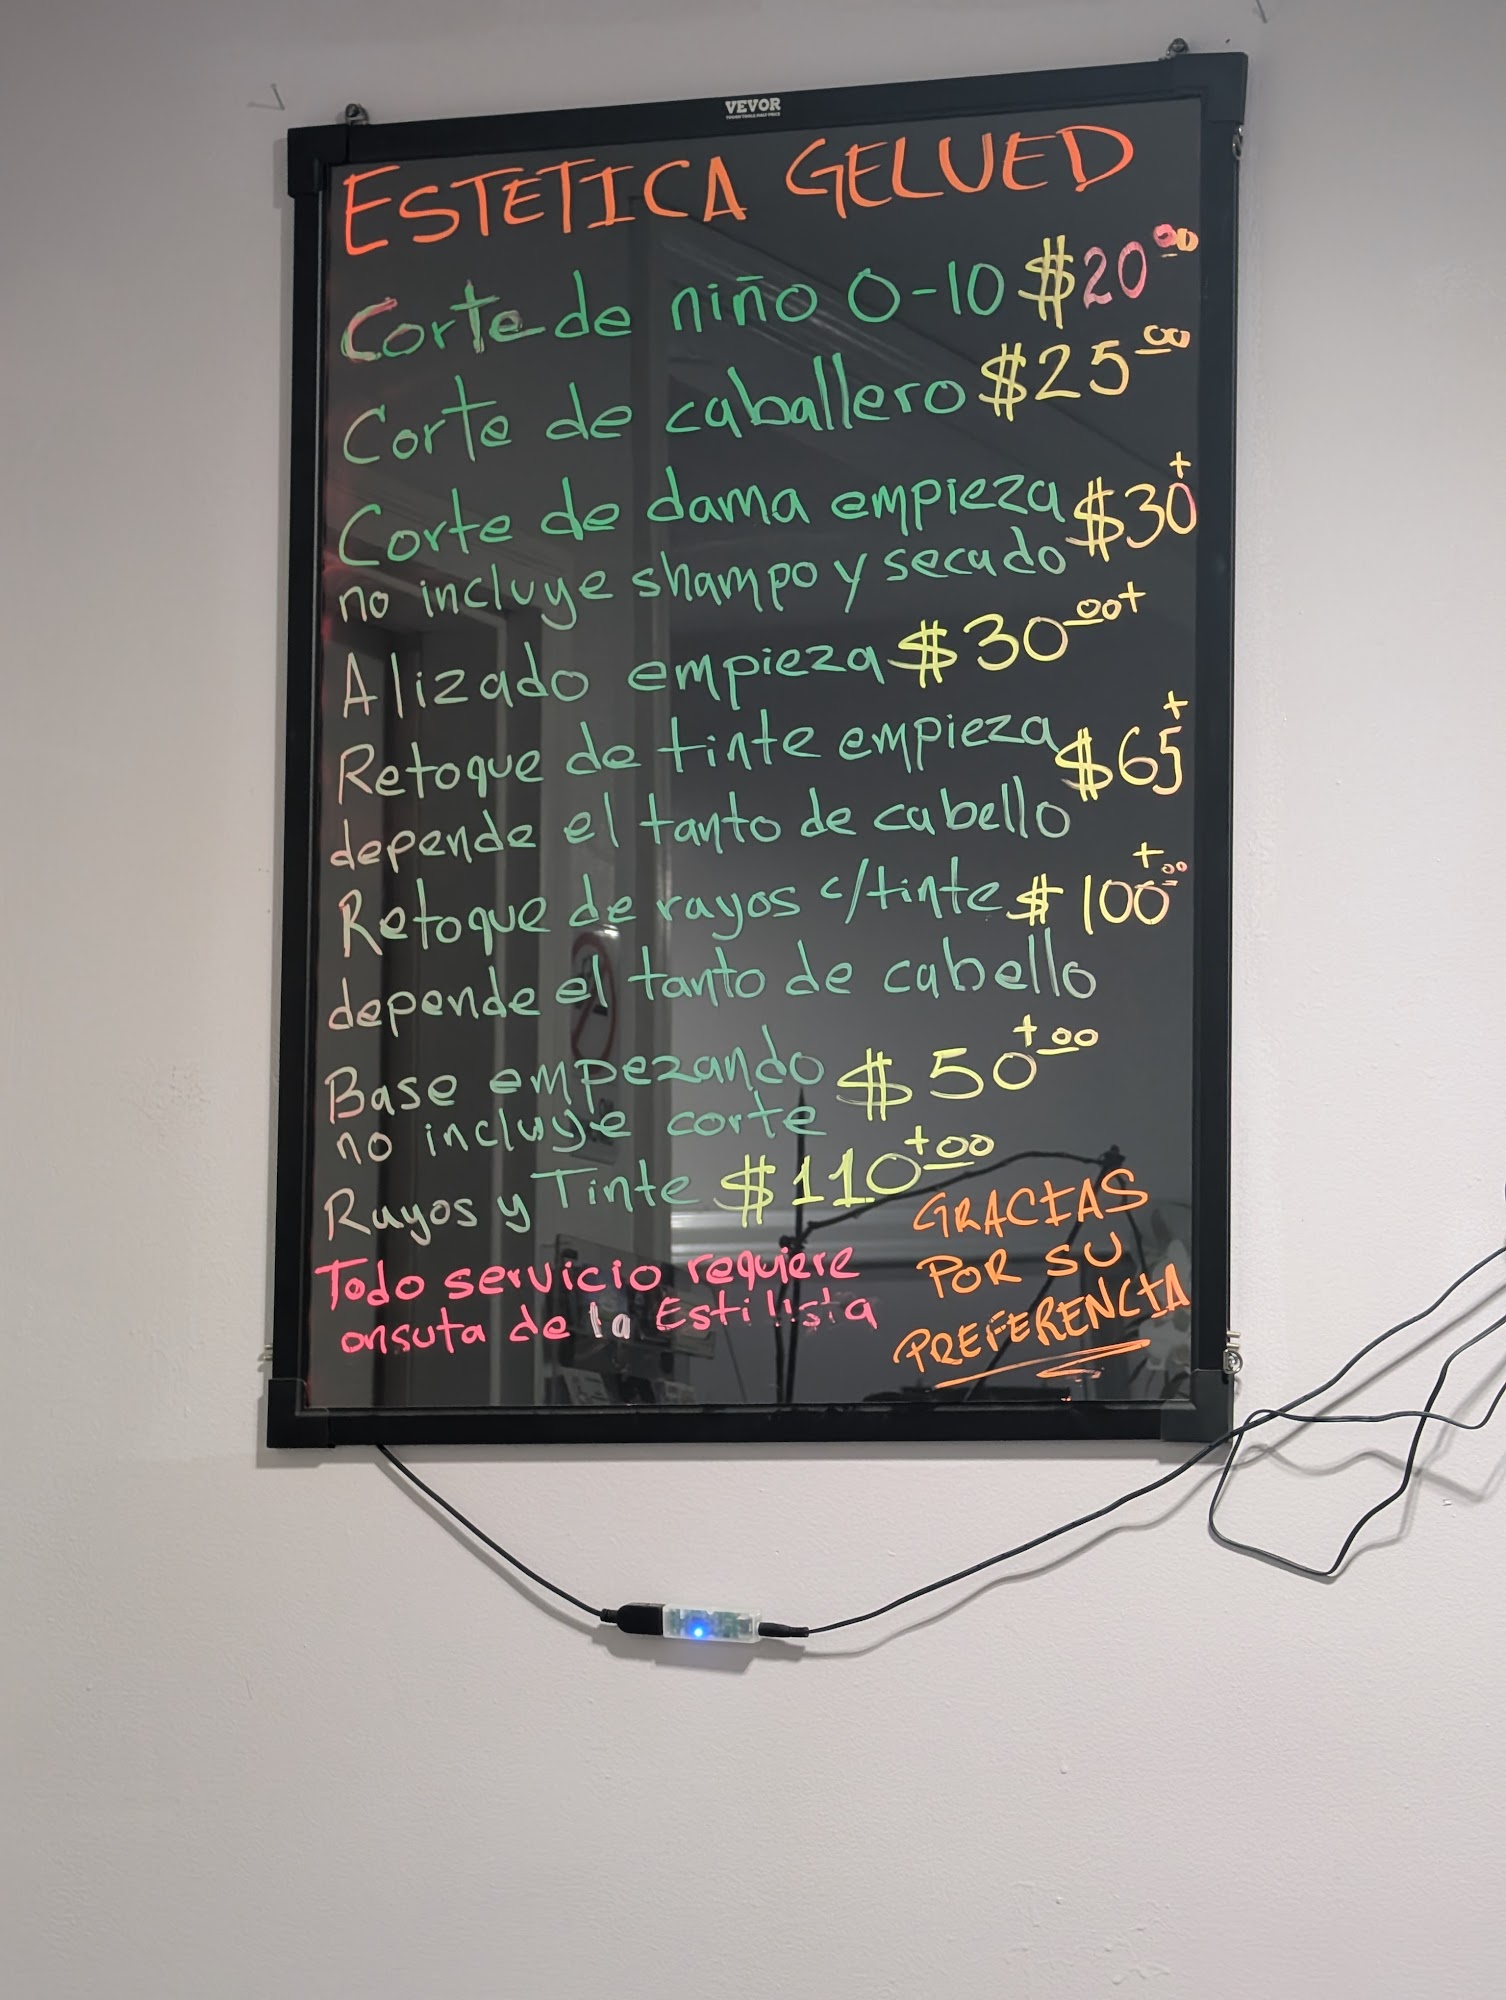 VEVOR
TOUGH TOOLS, HALF PRICE
ESTETICA GELUED
Corte de niño 0-10 $20.00
Corte de caballero $25.00
Corte de dama empieza $30+
no incluye shampo y secado
Alizado empieza $30.00+
Retoque de tinte empieza $65+
depende el tanto de cabello
Retoque de rayos c/tinte $100+.00
depende el tanto de cabello
Base empezando $50+.00
no incluye corte
Rayos y Tinte $110+.00
Todo servicio requiere
onsuta de la Estilista
GRACIAS
POR SU
PREFERENCIA